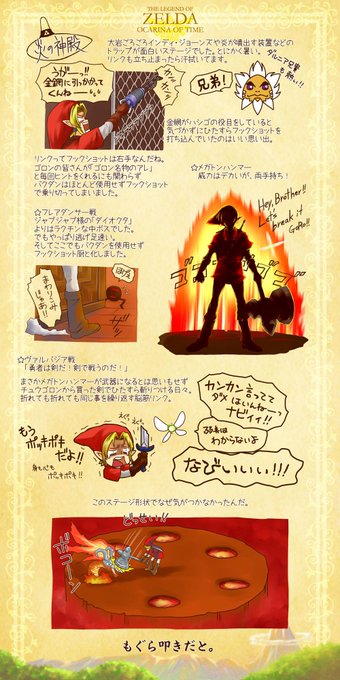 THE LEGEND OF
ZELDA
OCARINA OF TIME
炎の神殿
大岩ごろごろインディ・ジョーンズや炎が噴出す装置などの
トラップが面白いステージでした。とにかく暑い。
リンクも立ち止まったら汗拭いてます。
うがーっ!!
金網に引っかかって
くんねーーっ
兄弟!
ダルニア兄貴
も熱い!!
金網がハシゴの役目をしていると
気づかずにひたすらフックショットを
打ち込んでいたのはいい思い出。
リンクってフックショットは右手なんだね。
ゴロンの皆さんが「ゴロン名物のアレ」
と毎回ヒントをくれるにも関わらず
バクダンはほとんど使用せずフックショット
で乗り切ってしまいました。
☆フレアダンサー戦
ジャブジャブ様の「ダイオウタ」
よりはラクチンな中ボスでした。
でもやっぱり逃げ足速い。
そしてここでもバクダンを使用せず
フックショット厨と化しました。
☆メガトンハンマー
威力はデカいが、両手持ち!
Hey, Brother!!
Let's
break it
GoRo!!
☆ヴァルバジア戦
「勇者は剣だ!剣で戦うのだ!」
まさかメガトンハンマーが武器になるとは思いもせず
チュウゴロンから買った剣でひたすら斬りつける日々。
折れても折れても同じ事を繰り返す脳筋リンク。
もう
ポッキポキ
だよ!!
身も心も
ポッキポキ!!
カンカン言ってて
ダメなんねーっ
ナビィィ!!
わからないよ
なびいいい!!!
このステージ形状でなぜ気がつかなかったんだ。
どっせい!!
ボコーン
もぐら叩きだと。